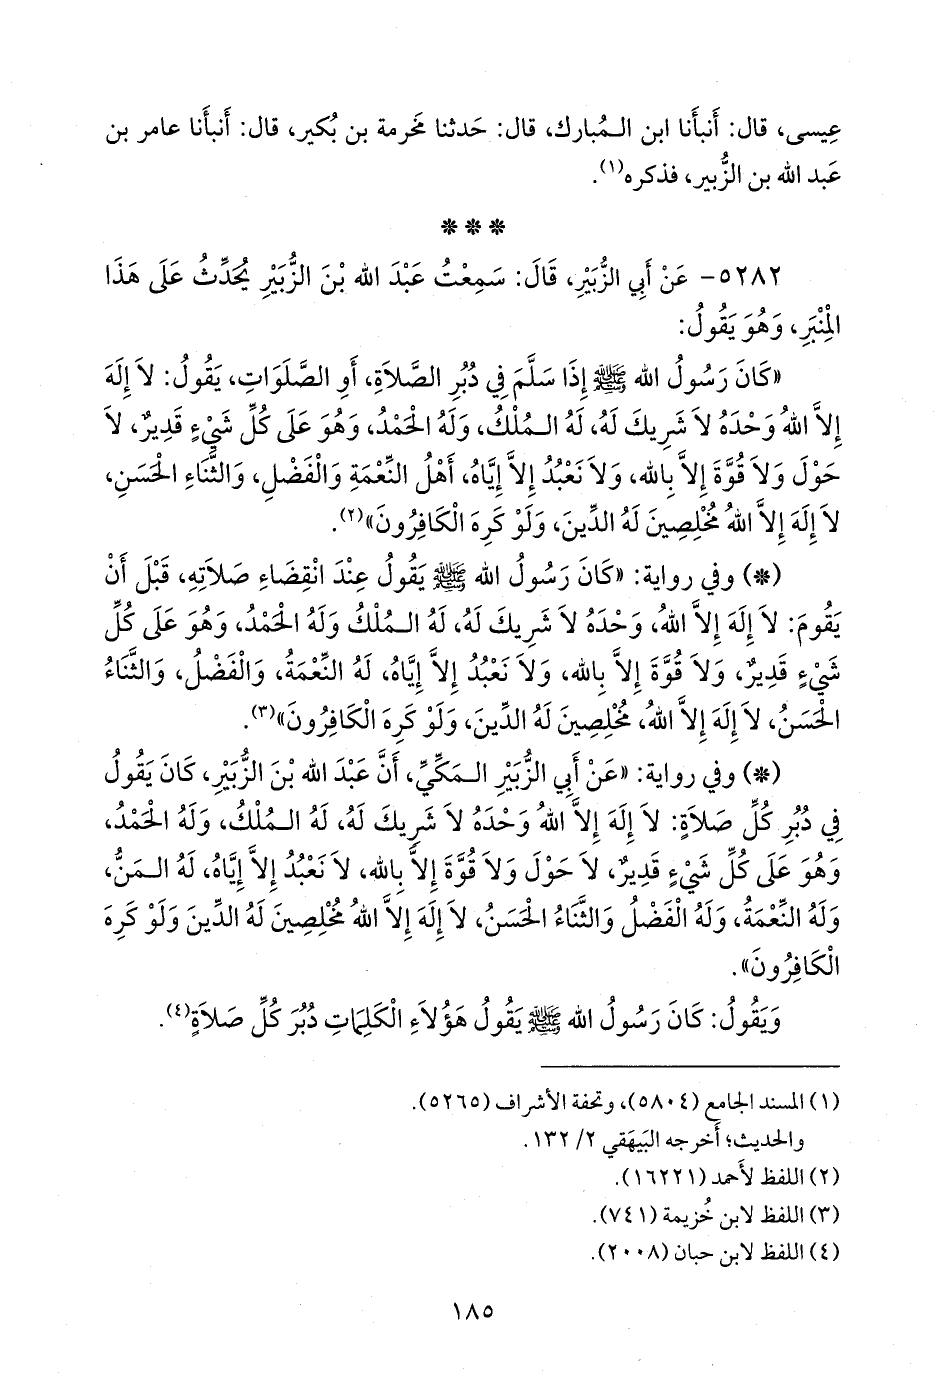 عِيسى، قال: أَنبأَنا ابن الـمُبارك، قال: حَدثنا مَخرمة بن بُكير، قال: أَنبأَنا عامر بن
عَبد الله بن الزُّبير، فذكره(١).
* * *
٥٢٨٢- عَنْ أَبِي الزُّبَيْرِ، قَالَ: سَمِعْتُ عَبْدَ الله بْنَ الزُّبَيْرِ يُحَدِّثُ عَلَى هَذَا
الْمِنْبَرِ، وَهُوَ يَقُولُ:
«كَانَ رَسُولُ الله ﷺ إِذَا سَلَّمَ فِي دُبُرِ الصَّلاَةِ، أَوِ الصَّلَوَاتِ، يَقُولُ: لاَ إِلَهَ
إِلاَّ اللهُ وَحْدَهُ لاَ شَرِيكَ لَهُ، لَهُ الـمُلْكُ، وَلَهُ الْحَمْدُ، وَهُوَ عَلَى كُلِّ شَيْءٍ قَدِيرٌ، لاَ
حَوْلَ وَلاَ قُوَّةَ إِلاَّ بِالله، وَلاَ نَعْبُدُ إِلاَّ إِيَّاهُ، أَهْلُ النِّعْمَةِ وَالْفَضْلِ، وَالثَّنَاءِ الْحَسَنِ،
لاَ إِلَهَ إِلاَّ اللهُ مُخْلِصِينَ لَهُ الدِّينَ، وَلَوْ كَرِهَ الْكَافِرُونَ»(٢).
(*) وفي رواية: «كَانَ رَسُولُ الله ﷺ يَقُولُ عِنْدَ انْقِضَاءِ صَلاَتِهِ، قَبْلَ أَنْ
يَقُومَ: لاَ إِلَهَ إِلاَّ اللهُ، وَحْدَهُ لاَ شَرِيكَ لَهُ، لَهُ الـمُلْكُ وَلَهُ الْحَمْدُ، وَهُوَ عَلَى كُلِّ
شَيْءٍ قَدِيرٌ، وَلاَ قُوَّةَ إِلاَّ بِالله، وَلاَ نَعْبُدُ إِلاَّ إِيَّاهُ، لَهُ النِّعْمَةُ، وَالْفَضْلُ، وَالثَّنَاءُ
الْحَسَنُ، لاَ إِلَهَ إِلاَّ اللهُ، مُخْلِصِينَ لَهُ الدِّينَ، وَلَوْ كَرِهَ الْكَافِرُونَ»(٣).
(*) وفي رواية: «عَنْ أَبِي الزُّبَيْرِ الـمَكِّيِّ، أَنَّ عَبْدَ الله بْنَ الزُّبَيْرِ، كَانَ يَقُولُ
فِي دُبُرِ كُلِّ صَلاَةٍ: لاَ إِلَهَ إِلاَّ اللهُ وَحْدَهُ لاَ شَرِيكَ لَهُ، لَهُ الـمُلْكُ، وَلَهُ الْحَمْدُ،
وَهُوَ عَلَى كُلِّ شَيْءٍ قَدِيرٌ، لاَ حَوْلَ وَلاَ قُوَّةَ إِلاَّ بِالله، لاَ نَعْبُدُ إِلاَّ إِيَّاهُ، لَهُ الـمَنُّ،
وَلَهُ النِّعْمَةُ، وَلَهُ الْفَضْلُ وَالثَّنَاءُ الْحَسَنُ، لاَ إِلَهَ إِلاَّ اللهُ مُخْلِصِينَ لَهُ الدِّينَ وَلَوْ كَرِهَ
الْكَافِرُونَ».
وَيَقُولُ: كَانَ رَسُولُ الله ﷺ يَقُولُ هَؤُلاَءِ الْكَلِمَاتِ دُبُرَ كُلِّ صَلاَةٍ(٤).
(١) المسند الجامع (٥٨٠٤)، وتحفة الأشراف (٥٢٦٥).
والحديث؛ أَخرجه البَيهَقي ٢/ ١٣٢.
(٢) اللفظ لأَحمد (١٦٢٢١).
(٣) اللفظ لابن خُزيمة (٧٤١).
(٤) اللفظ لابن حبان (٢٠٠٨).
١٨٥